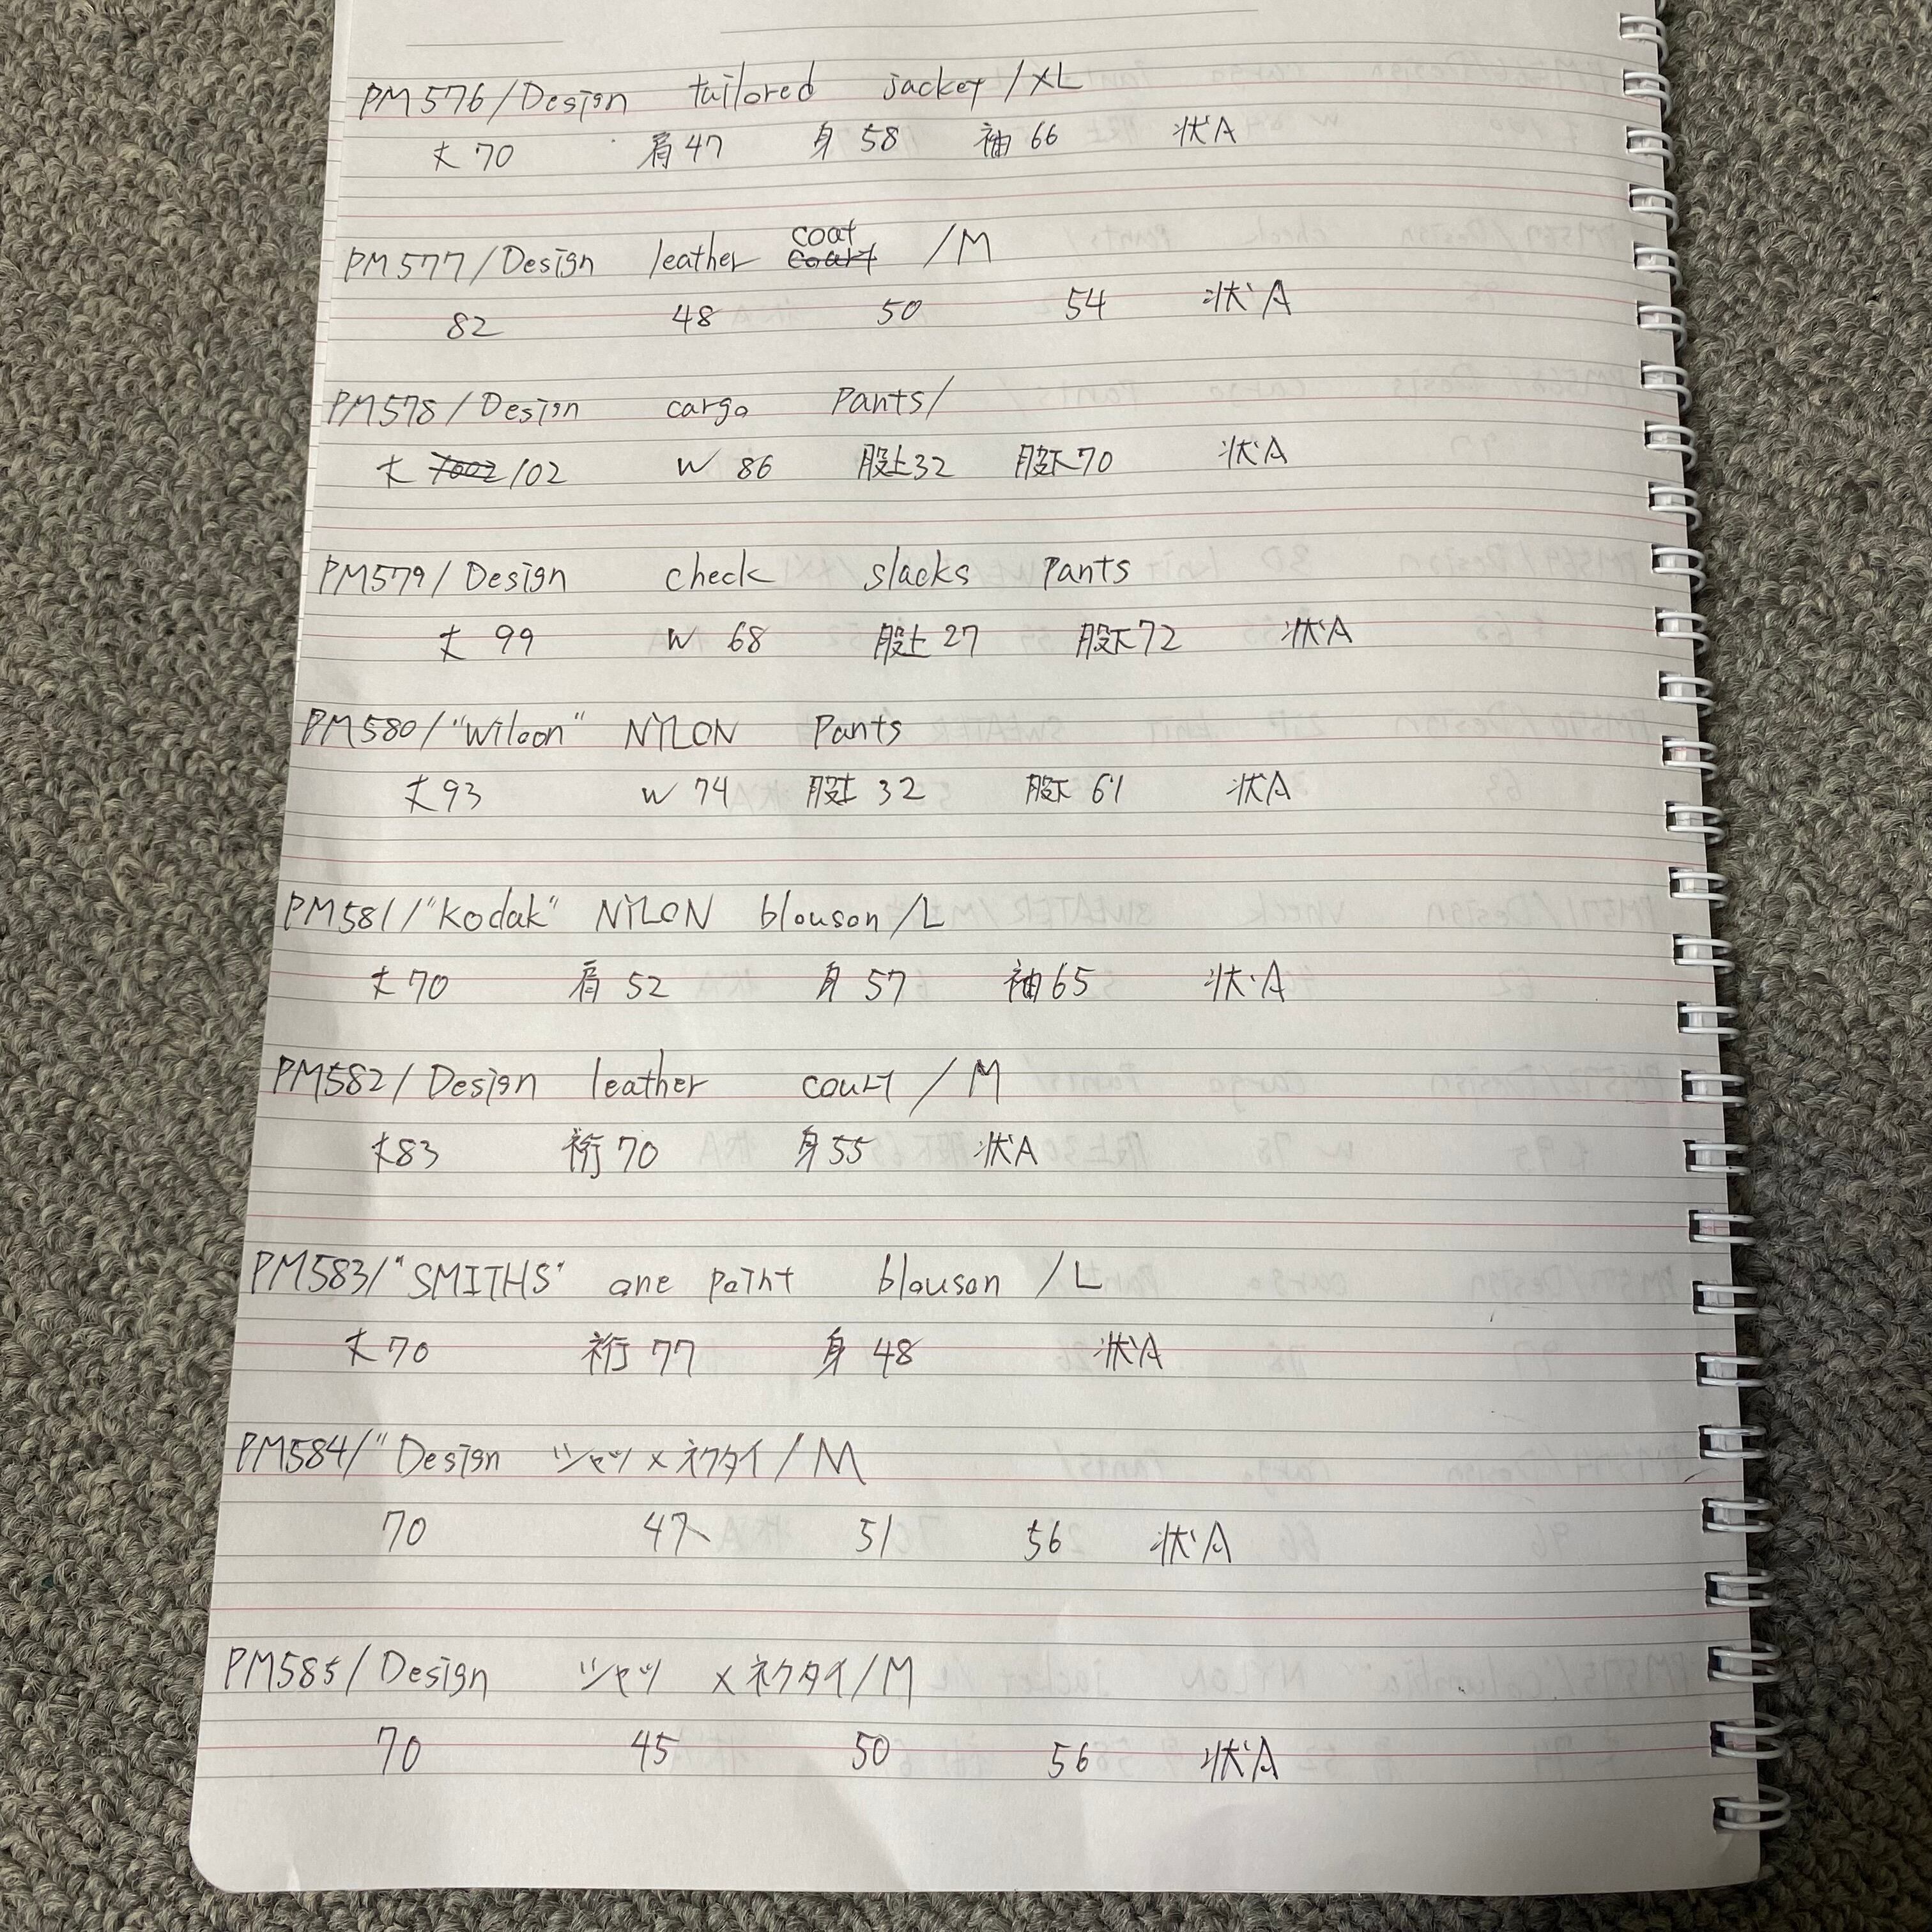 PM576/Design tailored jacket/XL
丈70 肩47 身58 袖66 状A
coat
PM577/Design leather /M
82 48 50 54 状A
PM578/Design cargo Pants/
丈 102 W 86 股上32 股下70 状A
PM579/Design check slacks Pants
丈 99 W 68 股上27 股下72 状A
PM580/"Wiloon" NYLON Pants
丈93 W 74 股上 32 股下 61 状A
PM581/"Kodak" NYLON blouson/L
丈70 肩 52 身 57 袖65 状A
PM582/Design leather court/M
丈83 裄70 身55 状A
PM583/"SMITHS" one point blouson/L
丈70 裄 77 身 48 状A
PM584/"Design シャツ×ネクタイ/M
70 47 51 56 状A
PM585/Design シャツ ×ネクタイ/M
70 45 50 56 状A